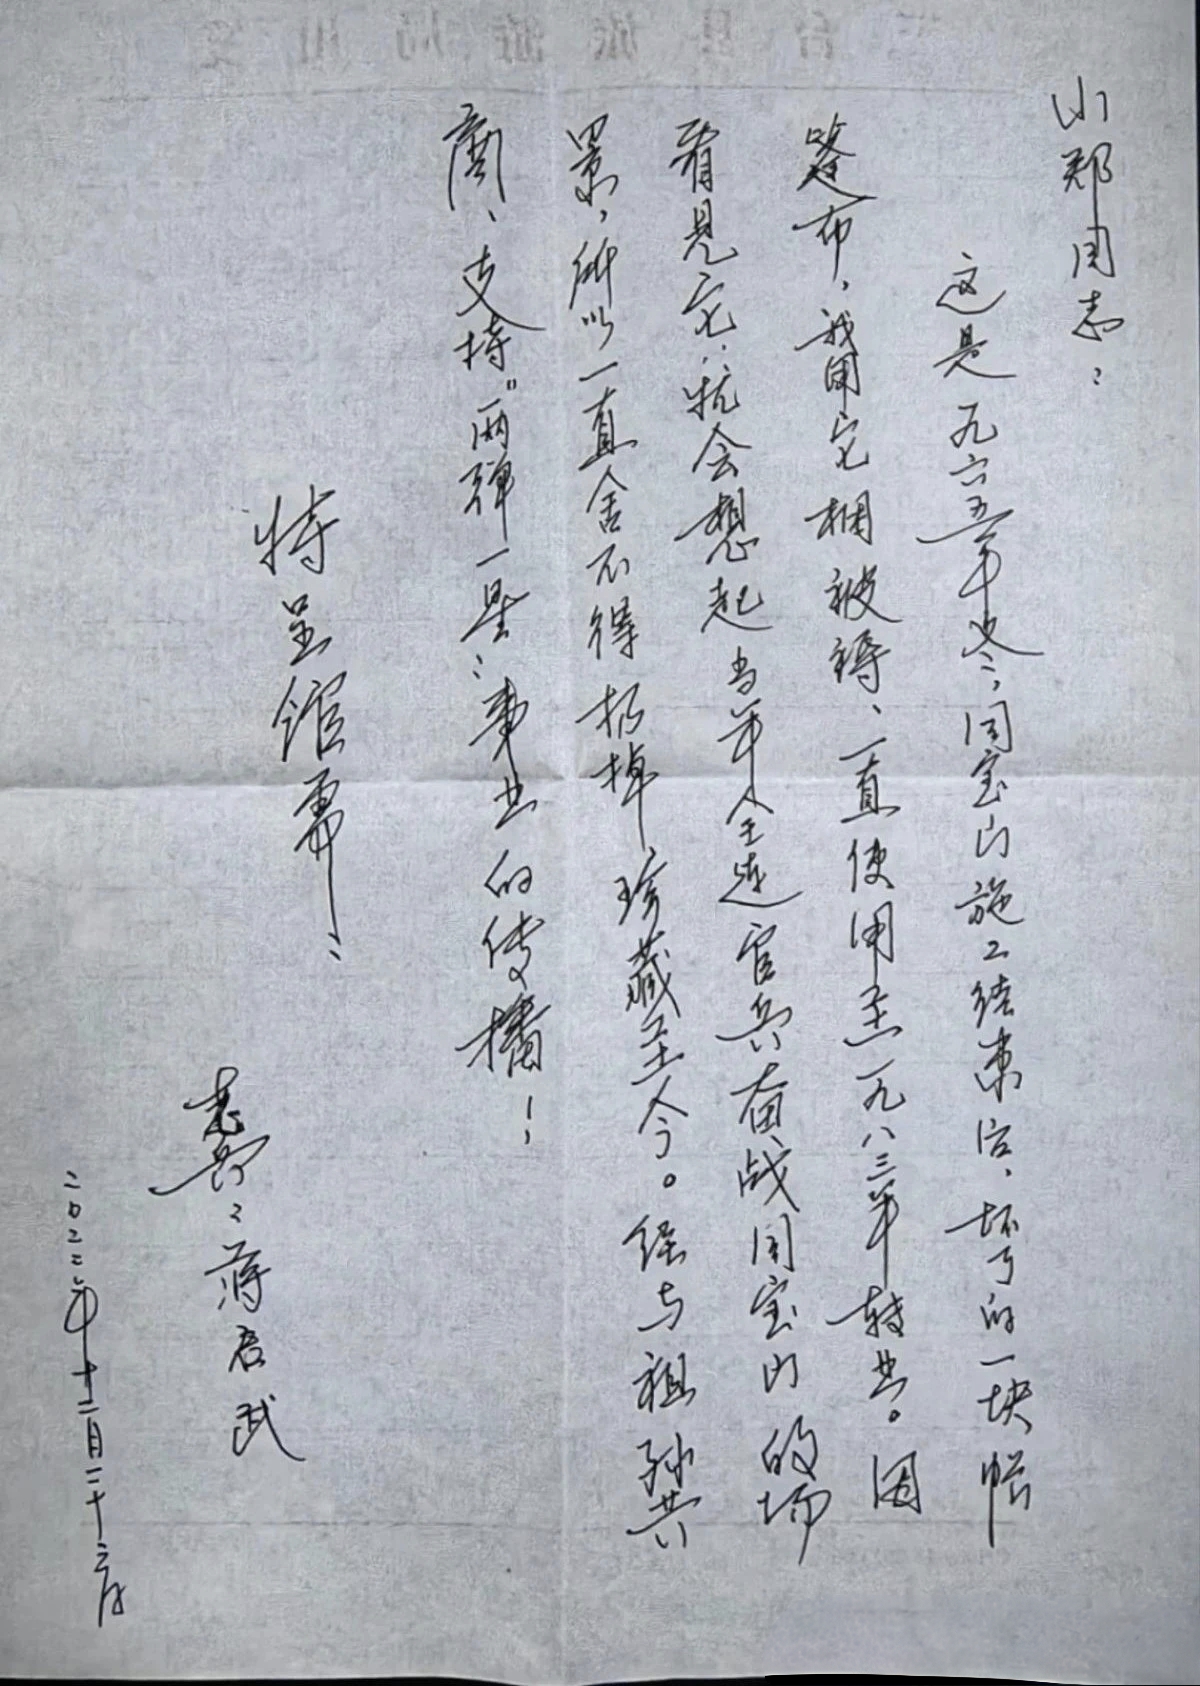 小郑同志：
这是一九六五年冬，国宝山施工结束后，坏了的一块帐
篷布，我用它捆被褥、一直使用至一九八三年转业。因
看见它：就会想起当年全连官兵奋战国宝山的场
景，所以一直舍不得扔掉，珍藏至今。经与祖孙共
商、支持“两弹一星”事业的传播！
特呈馆
老郭：蒋启武
二〇二二年十二月二十六日
台县旅游局用笺